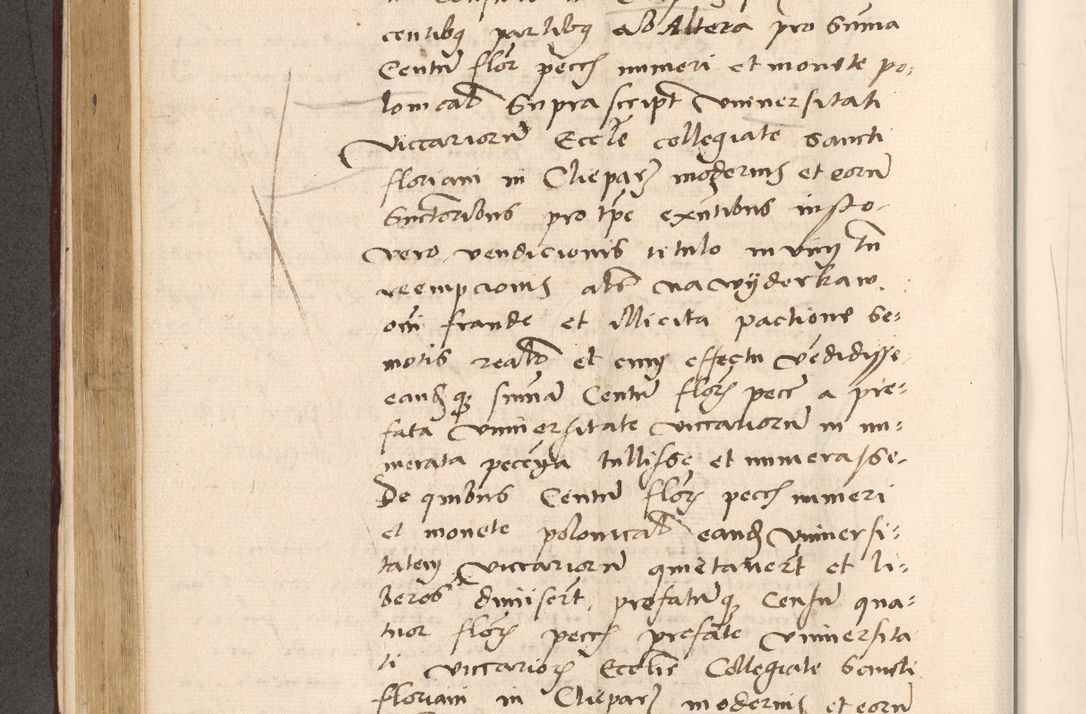 centibq partibq ab Altera pro Suma
Centu flor pecc numeri et monete po-
lonical Suprascript Universitati
Viccarioru Eccle collegiate Sancti
floriani in Clepar modernis et eoru
Suctoribus pro tpe exntibus iusto
vero vendicionis titulo in vim tn
reempcionis als na wyderkaw.
oi fraude et illicita pactione Se-
motis realr et cum effectu vedidisse
eandq suma Centu flor pecc a pre-
fata Universitate viccarioru in nu-
merata peccunia tullisse et numerasse.
De quibus Centu flor pecc numeri
et monete polonical eand Universi-
tatem Viccarioru quietavert et li-
beros dimisert, prefatuq Censu qua-
tuor flor pecc prefate Universita
ti viccarior Ecclie Collegiate Sancti
floriani in Clepar modernis et eoru